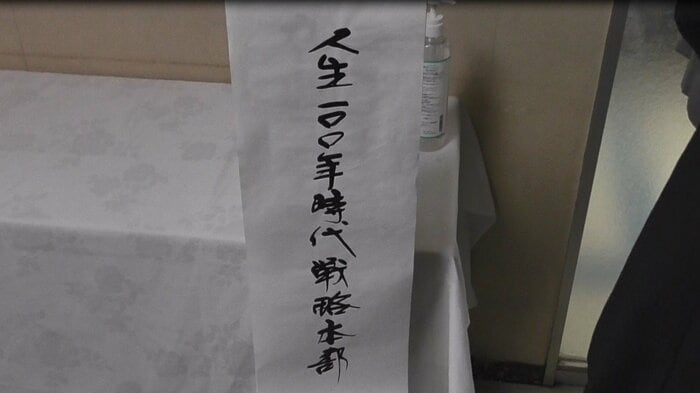 人生一〇〇年時代戦略本部